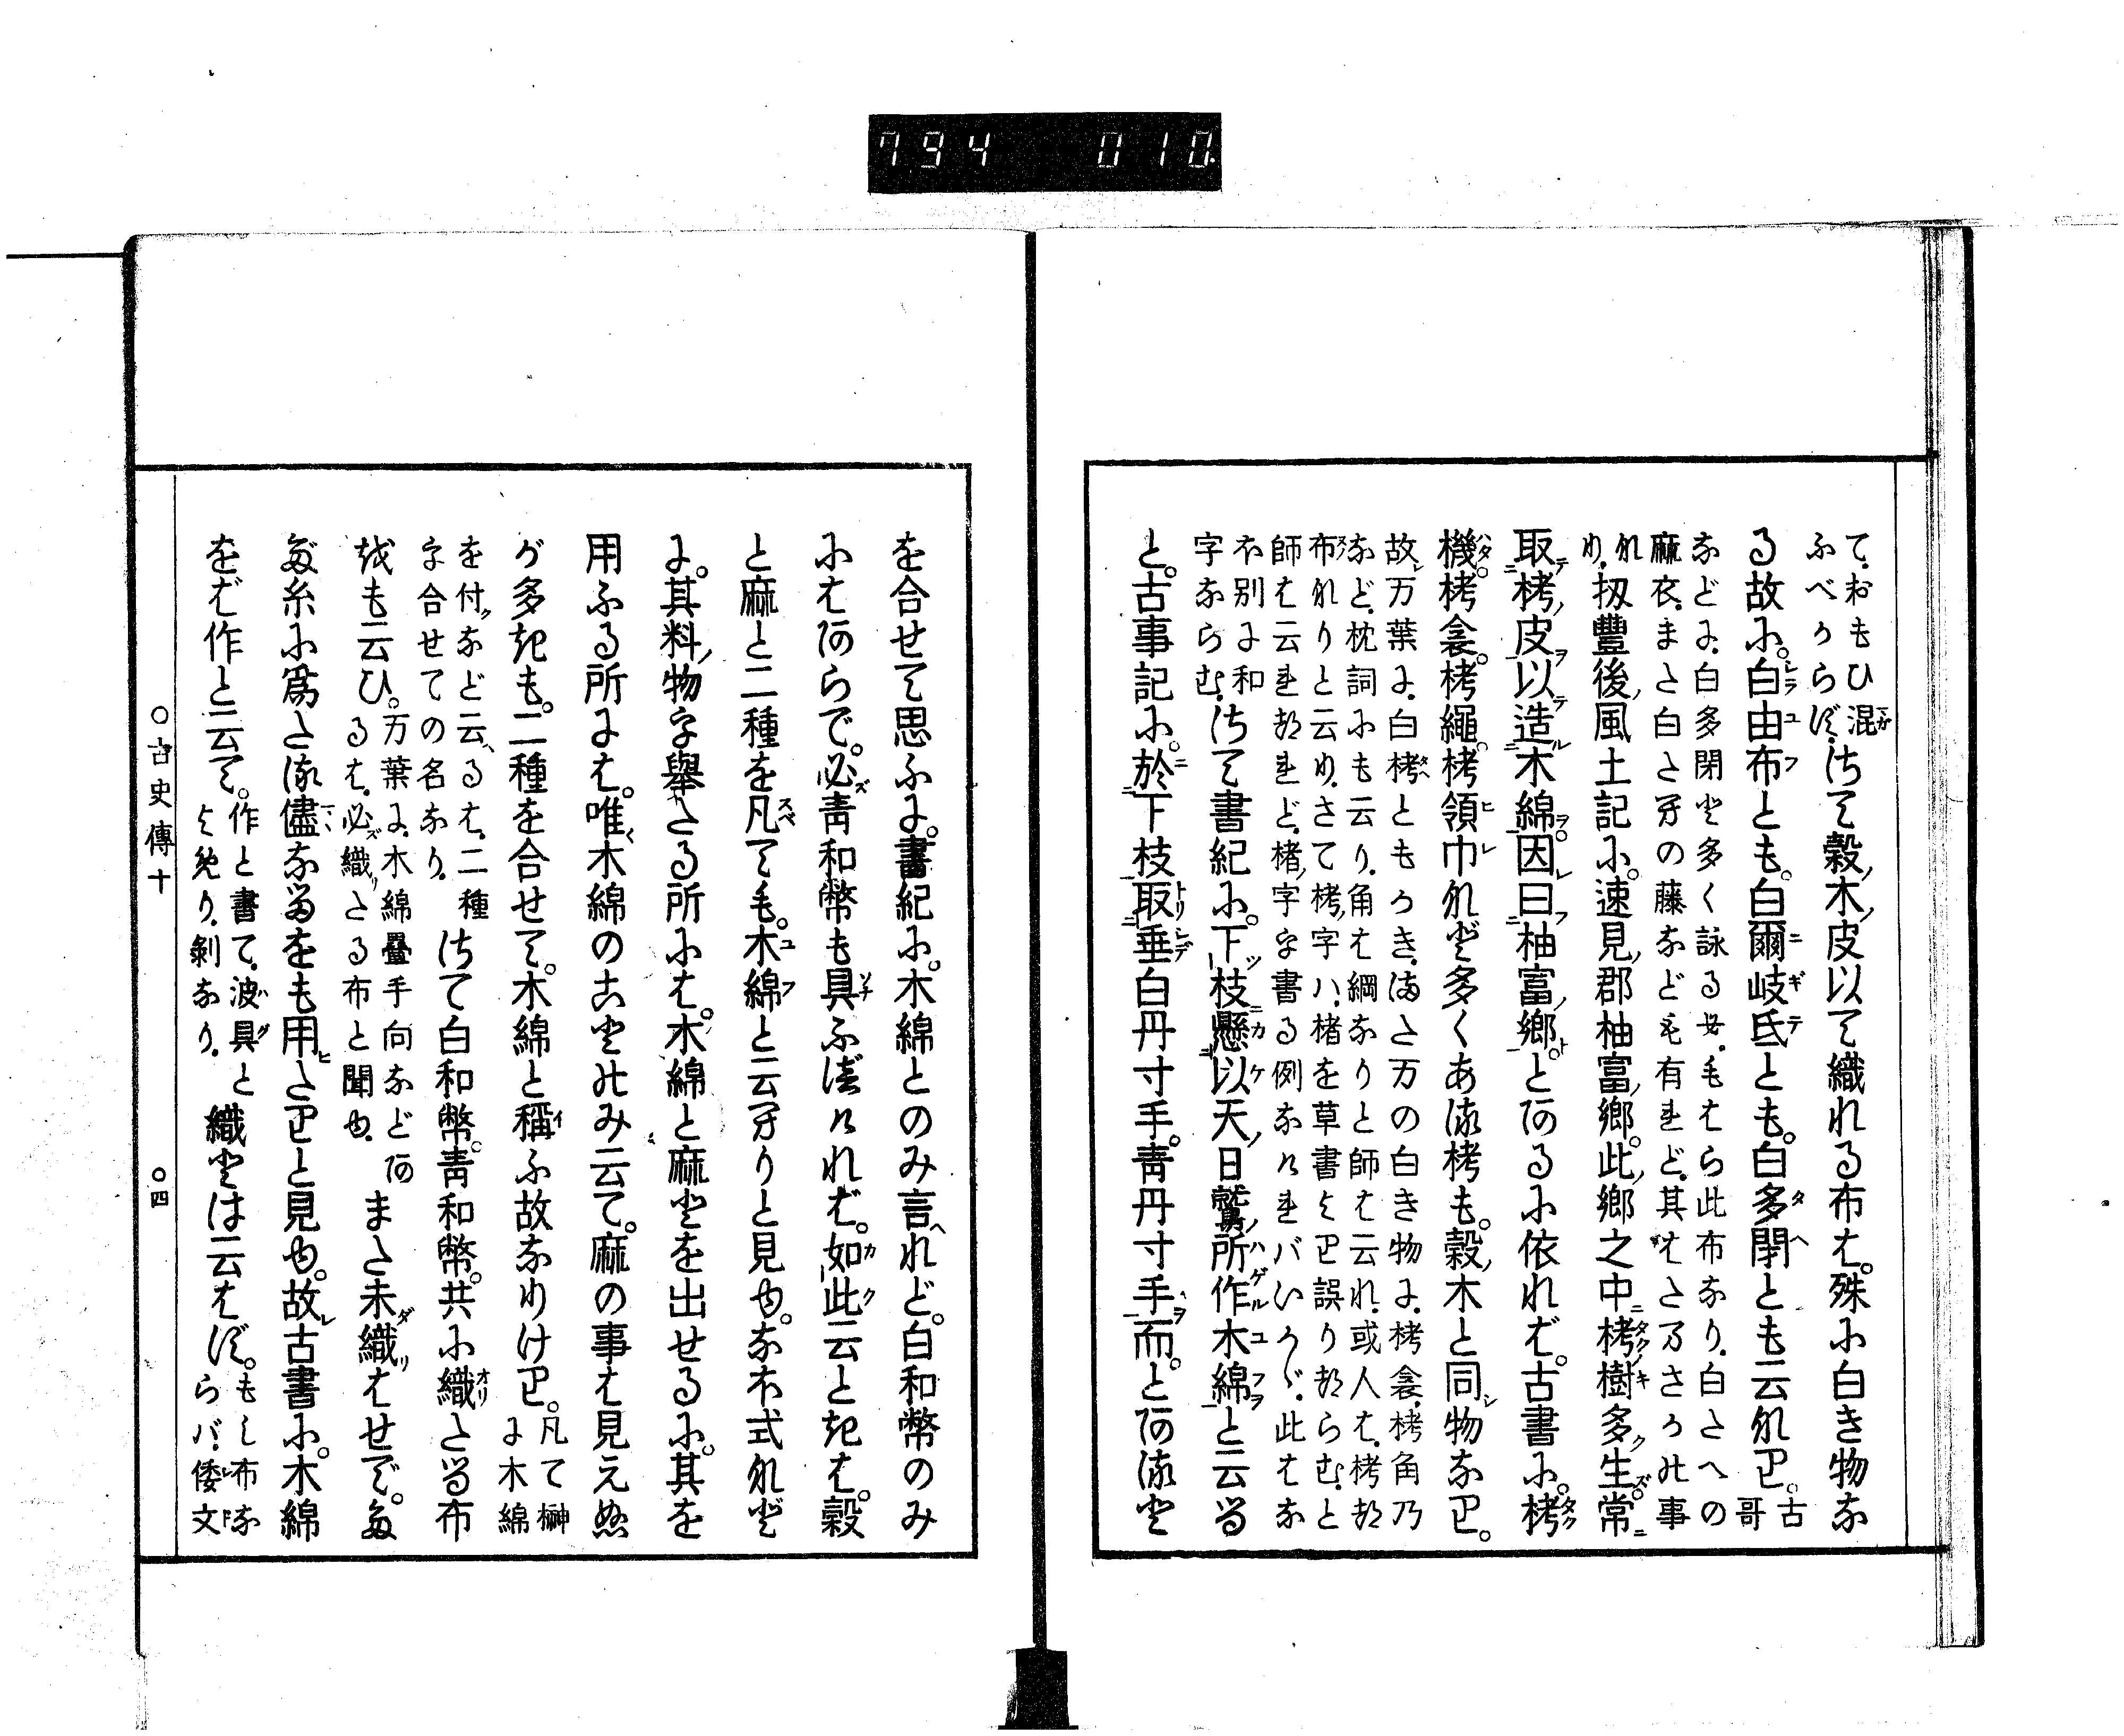 794 010
て、おもひ混
ふべからず、さて穀木皮以て織れる布は。殊に白き物な
る故に。白由布とも。白爾岐氐とも。白多閇とも云なり。古哥
などに、白多閇と多く詠るは、もはら此布なり、白たへの
麻衣、また白たヘの藤なども有れど、其はたまさかの事
なり、扨豐後風土記に。速見郡柚富郷。此郷之中栲樹多生。常
取栲皮以造木綿。因曰柚富郷。とあるに依れば。古書に。栲
機。栲衾。栲繩。栲領巾など多くある栲も。穀木と同物なり。
故万葉に、白栲ともかき、またの白き物に、栲衾、栲角乃
など、枕詞にも云り、角は綱なりと師は云れ、或人は、栲は
布なりと云り、さて栲字ハ、楮を草書より誤りけらむ、と
師は云れけれど、楮字を書る例なけれバいかゞ、此はな
ほ別に和
字ならむ、さて書紀に。下枝懸以天日鷲所作木綿と云る
と。古事記に。於下枝取垂白丹寸手。青丹寸手而。とあると
を合せて思ふに。書紀に。木綿とのみ言れど。白和幣のみ
にはあらで。必青和幣も具ふべければ。如此云ときは。穀
と麻と二種を凡ても。木綿と云へりと見ゆ。なほ式など
に。其料物を擧たる所には。木綿と麻とを出せるに。其を
用ふる所には。唯木綿のことのみ云て。麻の事は見えぬ
が多きも。二種を合せて。木綿と稱ふ故なりけり。凡て榊に木綿
を付など云るは、二種
を合せての名なり、さて白和幣。青和幣。共に織たる布
をも云ひ。万葉に、木綿疊手向などあるは、必織たる布と聞ゆ、また未織はせで。たゞ
糸に爲たる儘なるをも用たりと見ゆ。故古書に。木綿
をば作と云て。作と書て、波具とよめり、剝なり、織とは云はず。もし布ならバ、倭文
○古史傳十 ○四